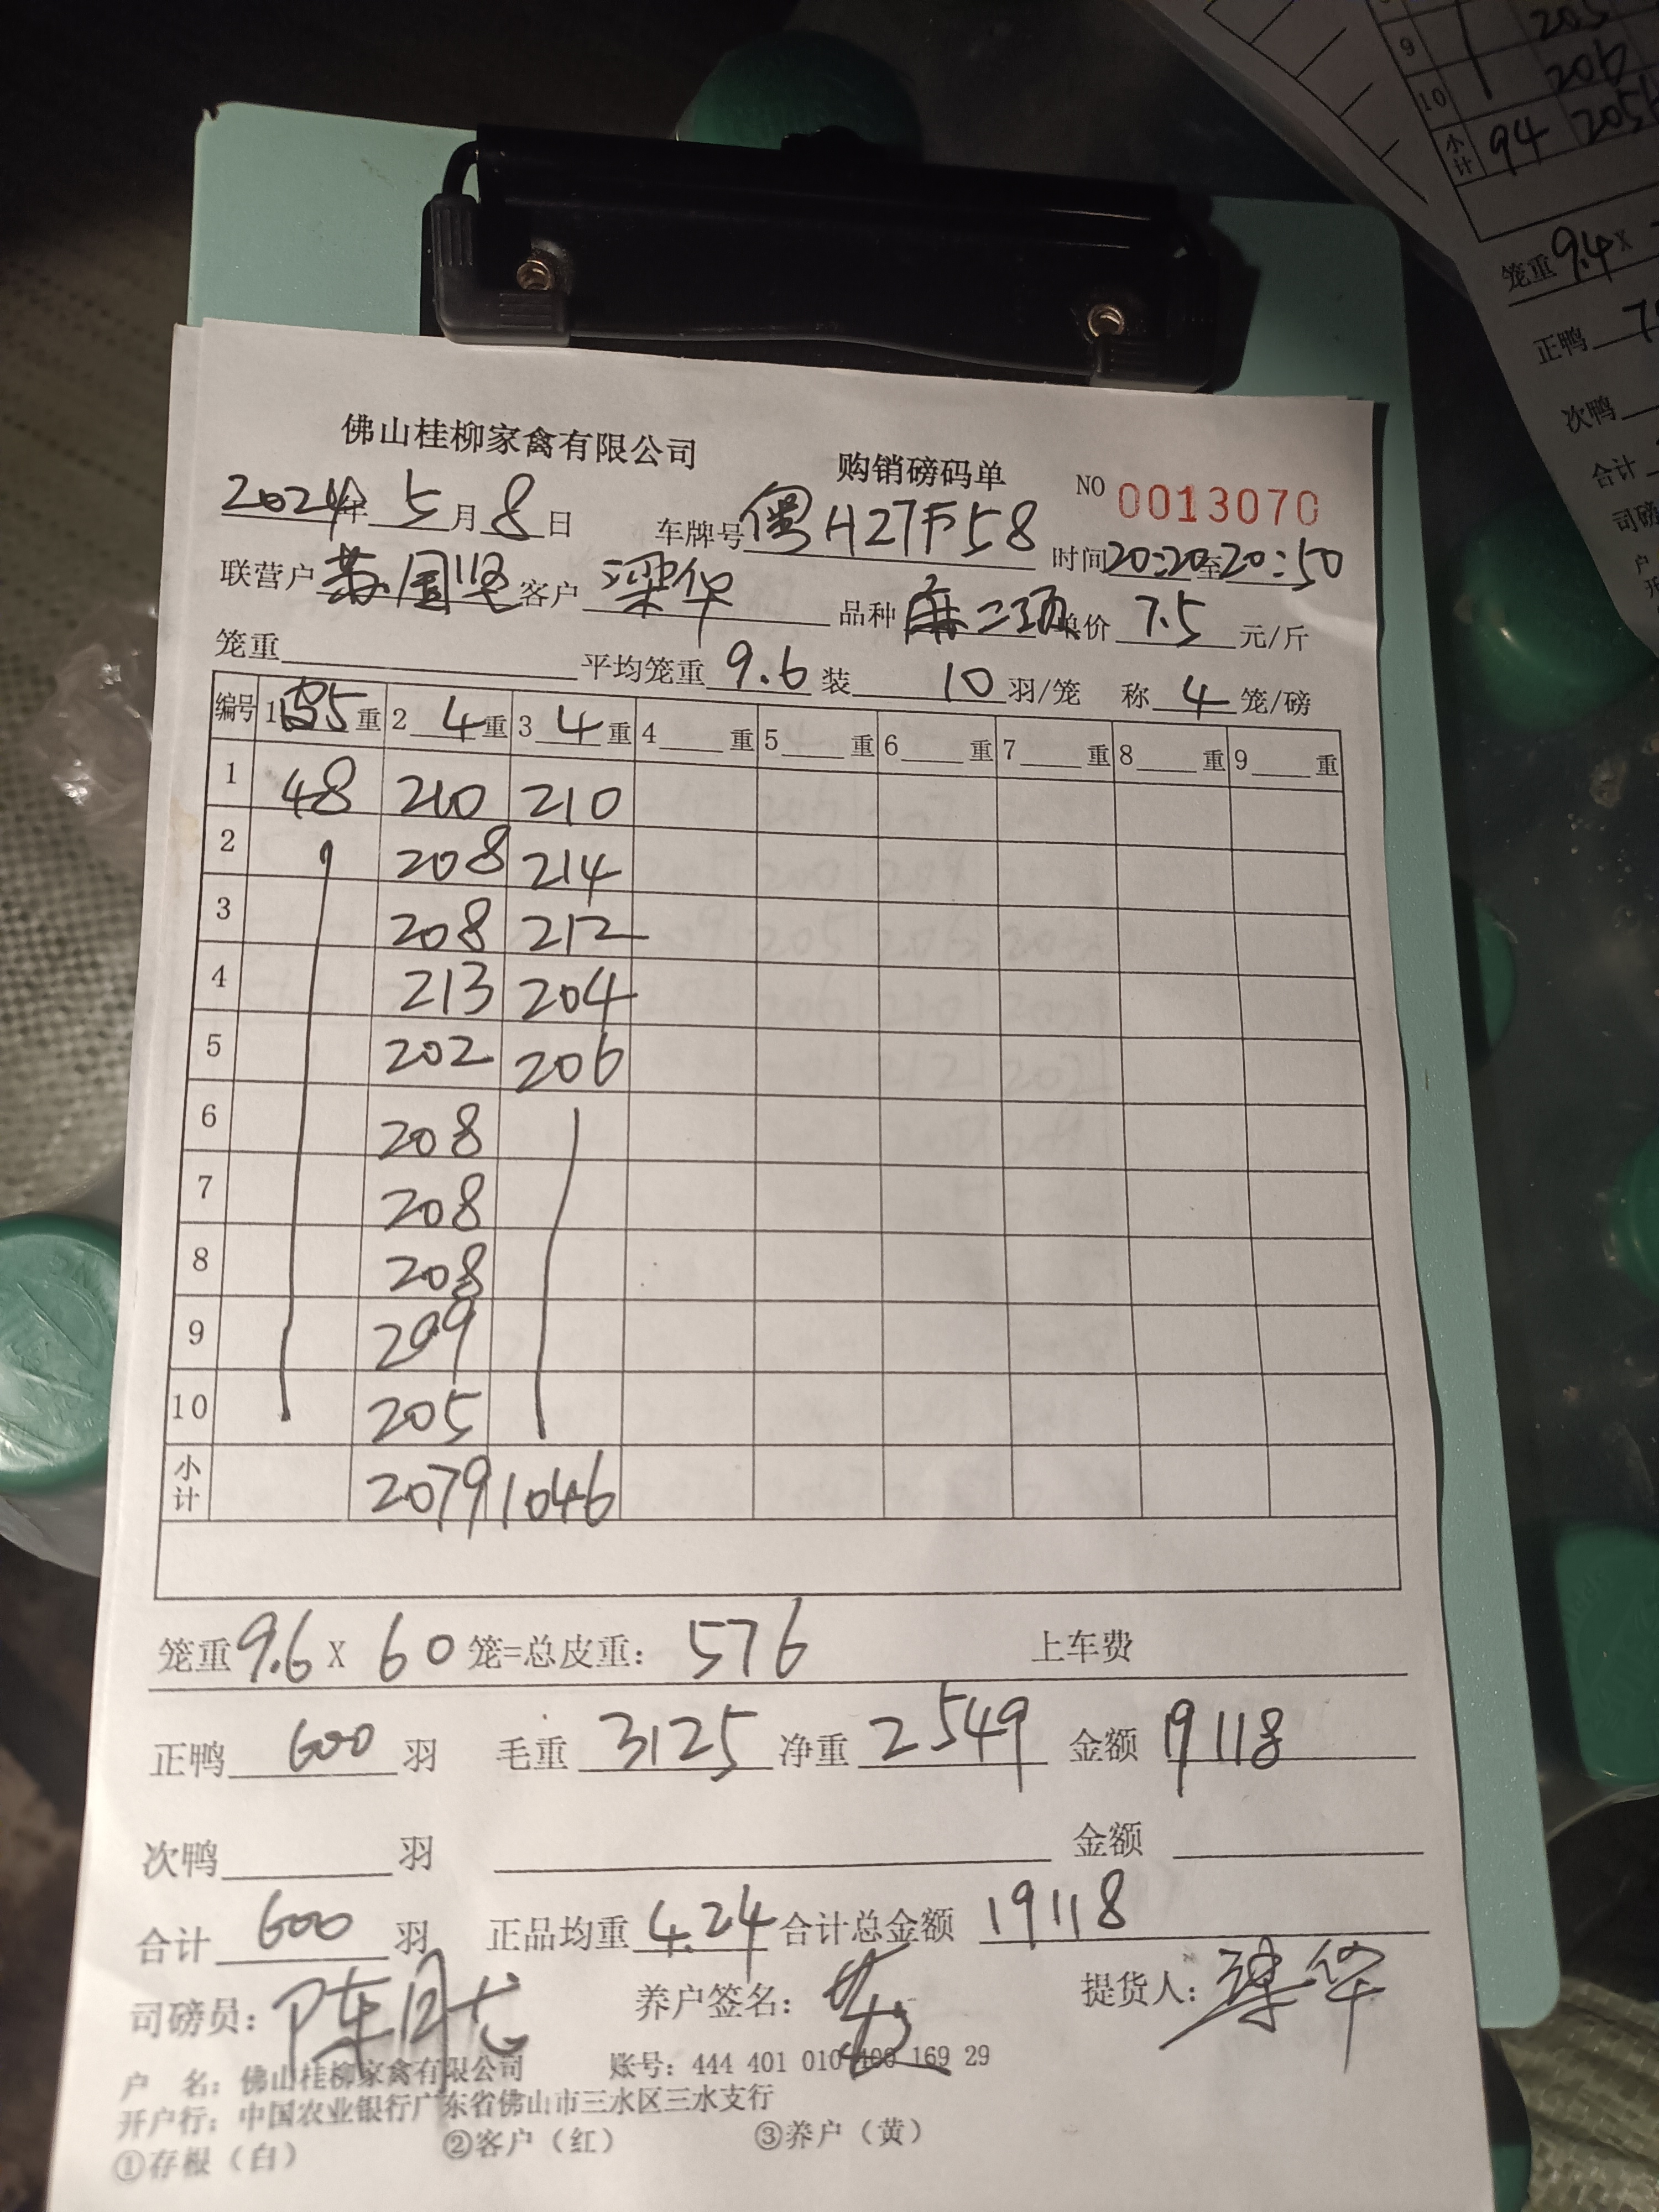 佛山桂柳家禽有限公司 购销磅码单 NO 0013070
2024年 5月 8日 车牌号 粤H27F58 时间 20:20至20:50
联营户 苏国坚 客户 梁华 品种 麻二项 单价 7.5 元/斤
笼重 平均笼重 9.6 装 10 羽/笼 称 4 笼/磅
编号 1 5重 2 4重 3 4重 4 重 5 重 6 重 7 重 8 重 9 重
1 48 210 210
2 208 214
3 208 212
4 213 204
5 202 206
6 208
7 208
8 208
9 209
10 205
小计 2079 1046
笼重 9.6 X 60 笼=总皮重: 576 上车费
正鸭 600 羽 毛重 3125 净重 2549 金额 19118
次鸭 羽 金额
合计 600 羽 正品均重 4.24 合计总金额 19118
司磅员: 陈 养户签名: 苏 提货人: 梁华
户 名: 佛山桂柳家禽有限公司 账号: 444 401 010 400 169 29
开户行: 中国农业银行广东省佛山市三水区三水支行
①存根（白） ②客户（红） ③养户（黄）
205
9
206
10
小计 94 205
笼重 9.4 X
正鸭
次鸭
合计
司磅
户
开